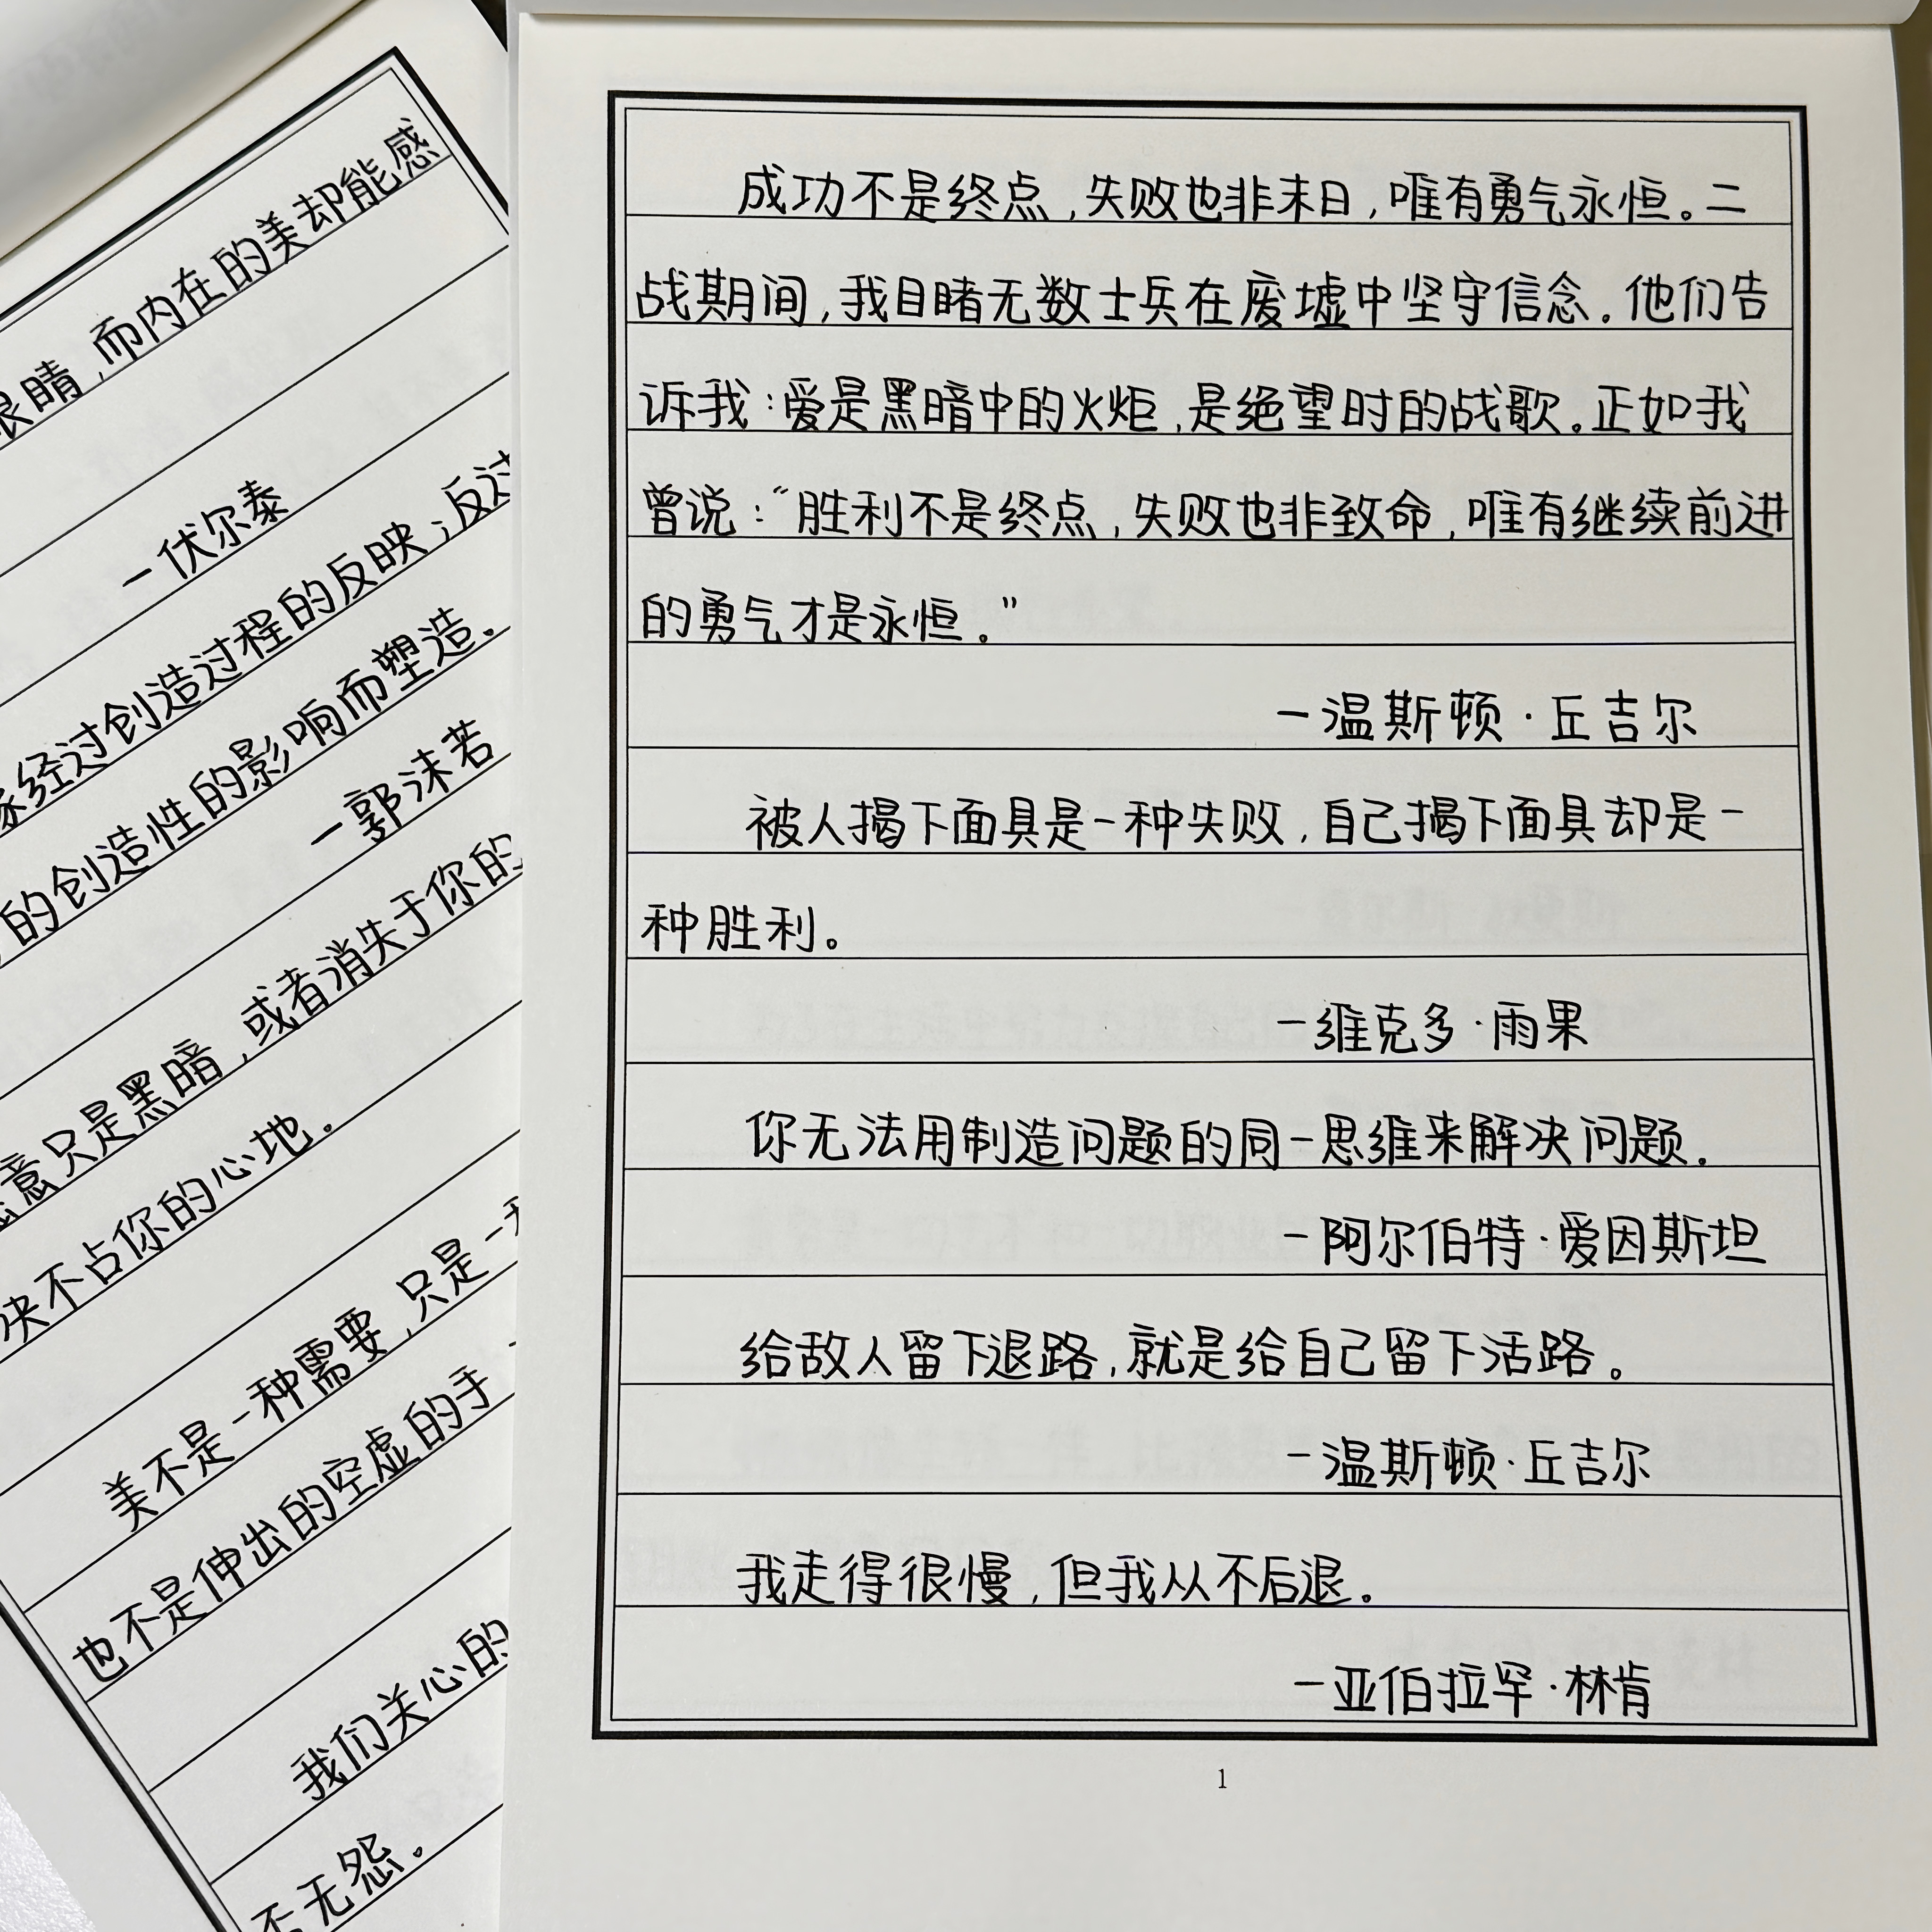 眼睛,而内在的美却能感
一伏尔泰
家经过创造过程的反映;反过
的创造性的影响而塑造.
一郭沫若
意只是黑暗,或者消失于你的
决不占你的心地.
美不是一种需要,只是一
也不是伸出的空虚的手
我们关心的
无怨.
成功不是终点,失败也非末日,唯有勇气永恒。二
战期间,我目睹无数士兵在废墟中坚守信念.他们告
诉我:爱是黑暗中的火炬,是绝望时的战歌.正如我
曾说:“胜利不是终点,失败也非致命,唯有继续前进
的勇气才是永恒。”
一温斯顿·丘吉尔
被人揭下面具是一种失败,自己揭下面具却是一
种胜利。
一维克多·雨果
你无法用制造问题的同一思维来解决问题.
一阿尔伯特·爱因斯坦
给敌人留下退路,就是给自己留下活路。
一温斯顿·丘吉尔
我走得很慢,但我从不后退。
一亚伯拉罕·林肯
1